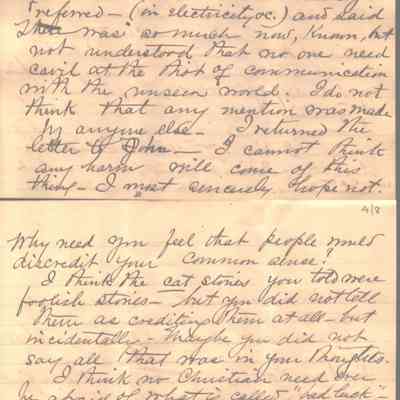 referred — (in electricity &c.) and said
There was so much now, known, but
not understood that no one need
cavil at the thot of communication
with the unseen world. I do not
think that any mention was made
by anyone else — I returned the
letter to John — I cannot think
any harm will come of this
thing — I most sincerely hope not.
4/8
Why need you feel that people would
discredit your common sense?
I think the cat stories you told were
foolish stories — but you did not tell
them as crediting them at all — but
incidentally — Maybe you did not
say all that was in your thoughts.
I think no Christian need ever
be afraid of what is called "bad luck" —